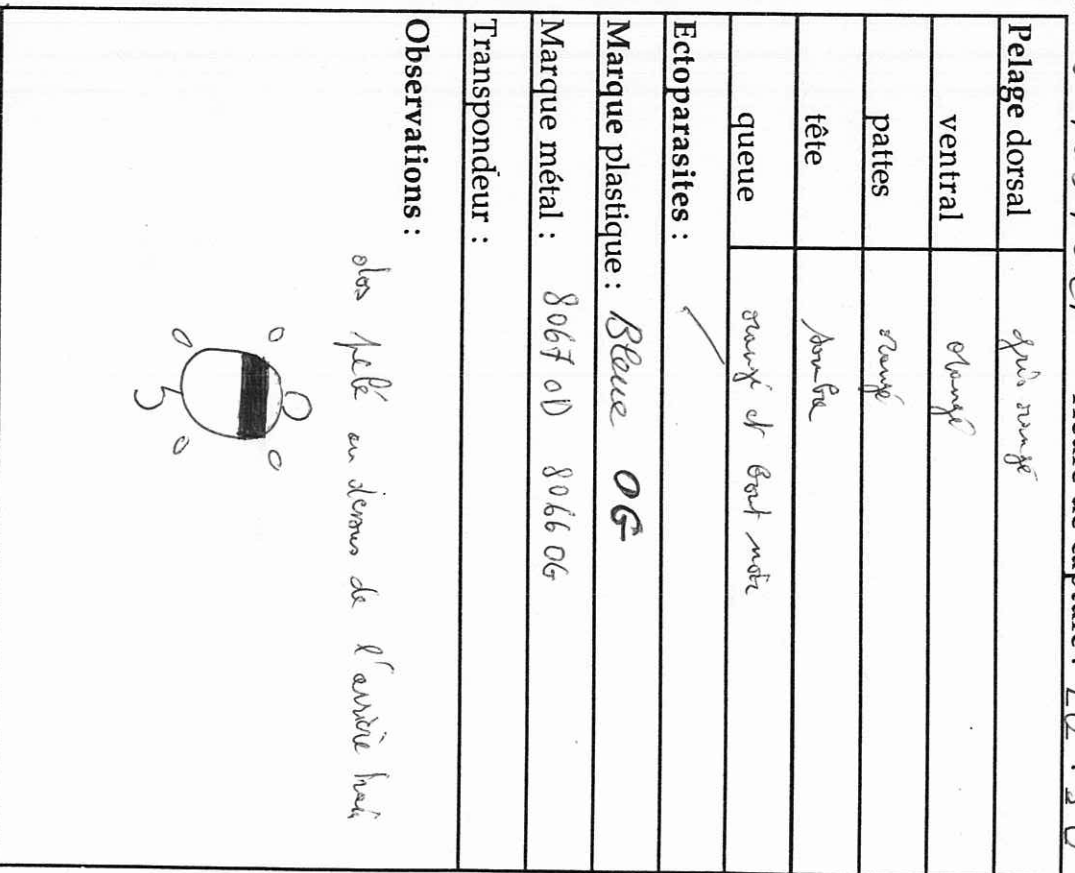 Heure de capture : 20 : 30
Pelage dorsal gris orangé
ventral orangé
pattes orangé
tête sombre
queue orangé et bout noir
Ectoparasites : /
Marque plastique : Bleue OG
Marque métal : 8067 OD 8066 OG
Transpondeur :
Observations :
dos pelé au dessus de l'arrière train